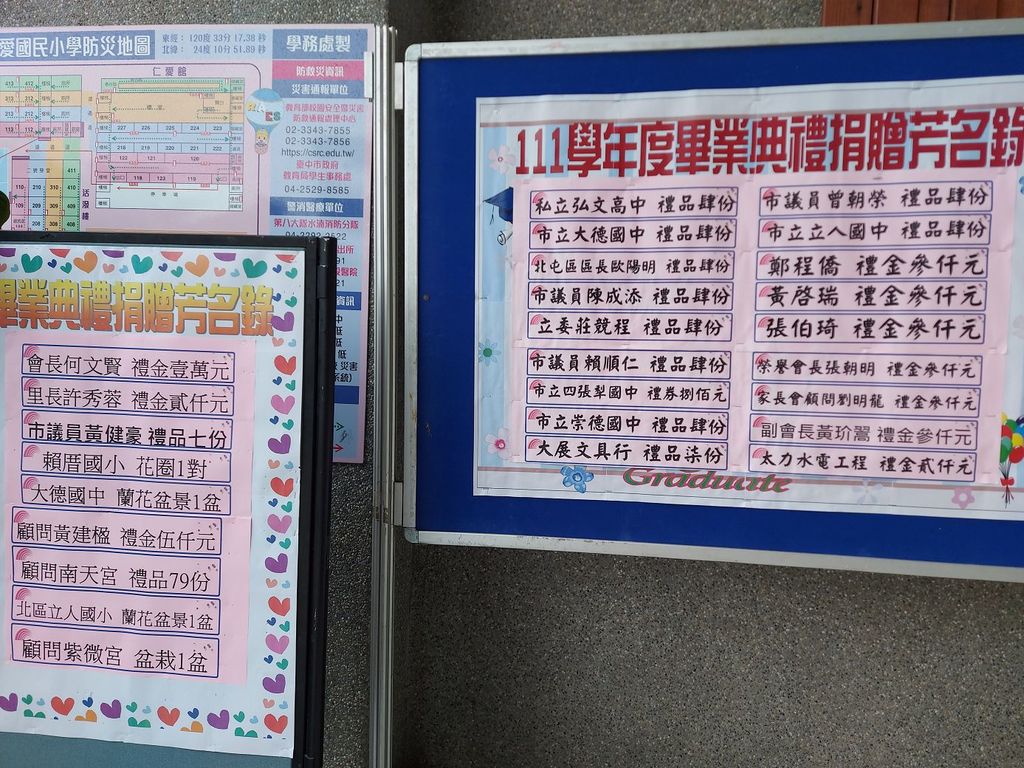 愛國民小學防災地圖
東經: 120度 33分 17.38 秒
北緯: 24度 10分 51.89 秒
仁愛館
學務處製
防救災資訊
災害通報單位
教育部校園安全暨災害
防救通報處理中心
02-3343-7855
02-3343-7856
https://csrc.edu.tw/
臺中市政府
教育局學生事務處
04-2529-8585
警消醫療單位
第八大隊水湳消防分隊
畢業典禮捐贈芳名錄
會長何文賢 禮金壹萬元
里長許秀蓉 禮金貳仟元
市議員黃健豪 禮品七份
賴厝國小 花圈1對
大德國中 蘭花盆景1盆
顧問黃建楹 禮金伍仟元
顧問南天宮 禮品79份
北區立人國小 蘭花盆景1盆
顧問紫微宮 盆栽1盆
111學年度畢業典禮捐贈芳名錄
私立弘文高中 禮品肆份
市立大德國中 禮品肆份
北屯區區長歐陽明 禮品肆份
市議員陳成添 禮品肆份
立委莊競程 禮品肆份
市議員賴順仁 禮品肆份
市立四張犁國中 禮券捌佰元
市立崇德國中 禮品肆份
大展文具行 禮品柒份
市議員曾朝榮 禮品肆份
市立立人國中 禮品肆份
鄭程僑 禮金參仟元
黃啓瑞 禮金參仟元
張伯琦 禮金參仟元
榮譽會長張朝明 禮金參仟元
家長會顧問劉明龍 禮金參仟元
副會長黃玠嵩 禮金參仟元
太力水電工程 禮金貳仟元
Graduate